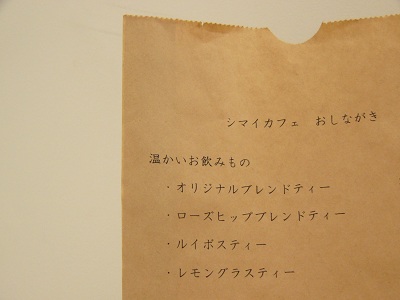 シマイカフェ　おしながき
温かいお飲みもの
・オリジナルブレンドティー
・ローズヒップブレンドティー
・ルイボスティー
・レモングラスティー